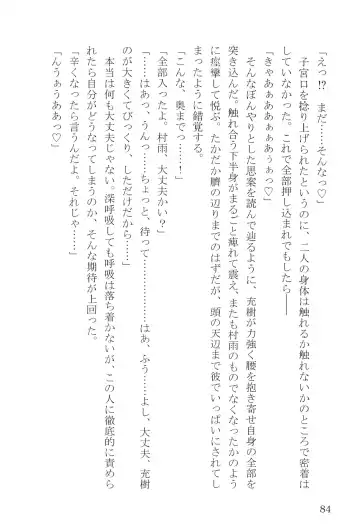 「えっ!?　まだ……そんなっ♡」
　子宮口を捻り上げられたというのに、二人の身体は触れるか触れないかのところで密着は
していなかった。これで全部押し込まれでもしたら――
「きゃああああぁぁあぅぁっ♡」
　そんなぼんやりとした思案を読んで辿るように、充樹が力強く腰を抱き寄せ自身の全部を
突き込んだ。触れ合う下半身がまるごと痺れて震え、またも村雨のものでなくなったかのよう
に痙攣して悦ぶ。たかだか臍の辺りまでのはずだが、頭の天辺まで彼でいっぱいにされてし
まったように錯覚する。
「こんな、奥まで……っ!」
「全部入ったよ。村雨、大丈夫かい?」
「……はあっ、うんっ……ちょっと、待って…………はあ、ふう……よし、大丈夫、充樹
のが大きくてびっくり、しただけだから……」
　本当は何も大丈夫じゃない。深呼吸しても呼吸は落ち着かないが、この人に徹底的に責めら
れたら自分がどうなってしまうのか、そんな期待が上回った。
「辛くなったら言うんだよ。それじゃ……」
「んうぁうああっ♡」
84